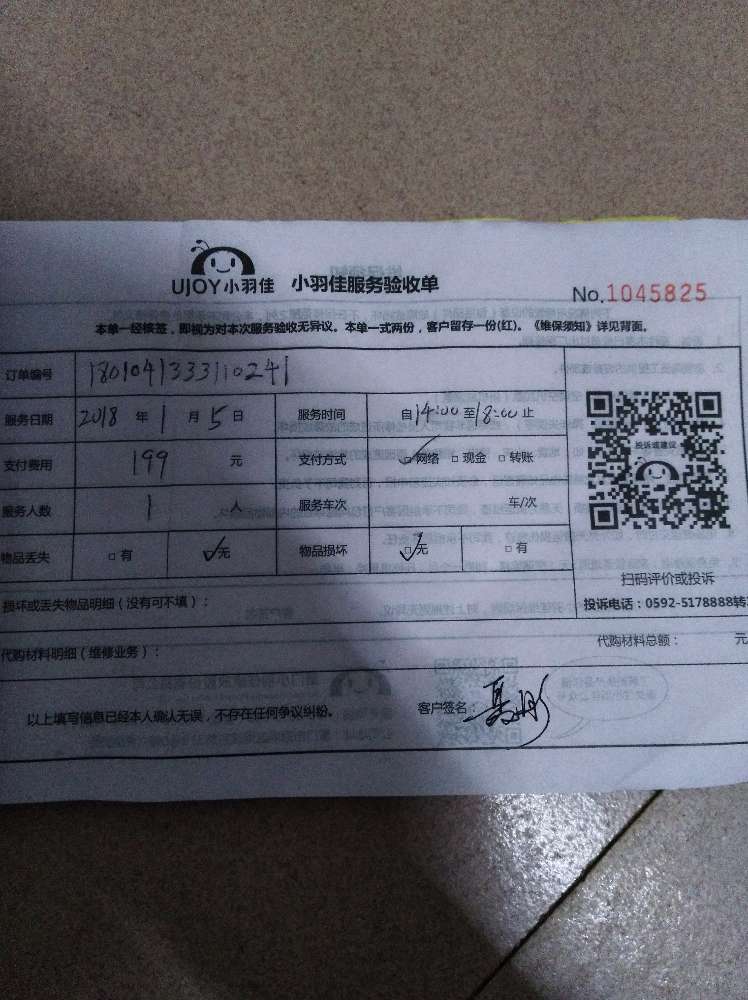 UJOY小羽佳 小羽佳服务验收单
No.1045825
本单一经核签，即视为对本次服务验收无异议。本单一式两份，客户留存一份(红)。《维保须知》详见背面。
订单编号 1801041333110241
服务日期 2018 年 1 月 5 日 服务时间 自14:00至18:00止
支付费用 199 元 支付方式 ☑网络 □现金 □转账
服务人数 1 人 服务车次 车/次
物品丢失 □有 ☑无 物品损坏 ☑无 □有
投诉或建议
扫码评价或投诉
投诉电话：0592-5178888转
损坏或丢失物品明细（没有可不填）：
代购材料明细（维修业务）： 代购材料总额： 元
以上填写信息已经本人确认无误，不存在任何争议纠纷。 客户签名：